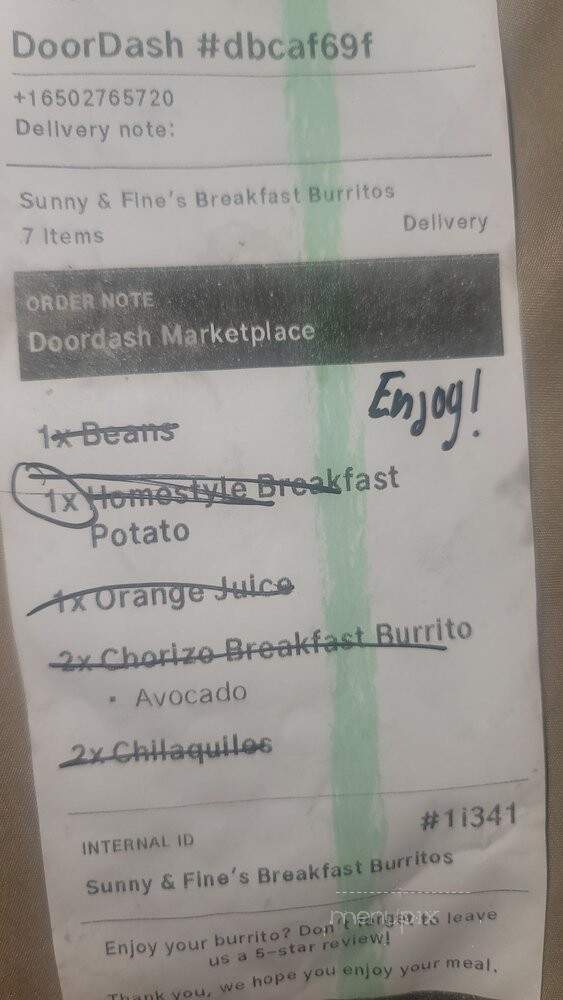 DoorDash #dbcaf69f
+16502765720
Delivery note:
Sunny & Fine's Breakfast Burritos
7 Items
Delivery
ORDER NOTE
Doordash Marketplace
Enjoy!
1x Beans
1x Homestyle Breakfast
Potato
1x Orange Juice
2x Chorizo Breakfast Burrito
• Avocado
2x Chilaquiles
#1i341
INTERNAL ID
Sunny & Fine's Breakfast Burritos
menupix
Enjoy your burrito? Don't forget to leave
us a 5-star review!
Thank you, we hope you enjoy your meal.